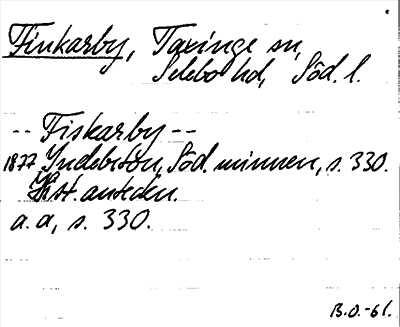 Finkarby, Taxinge sn,
Selebo hd, Söd. l.
-- Fiskarby --
1877 Indebetou, Söd. minnen, s. 330.
Hist. anteckn.
a.a, s. 330.
B.O.-61.